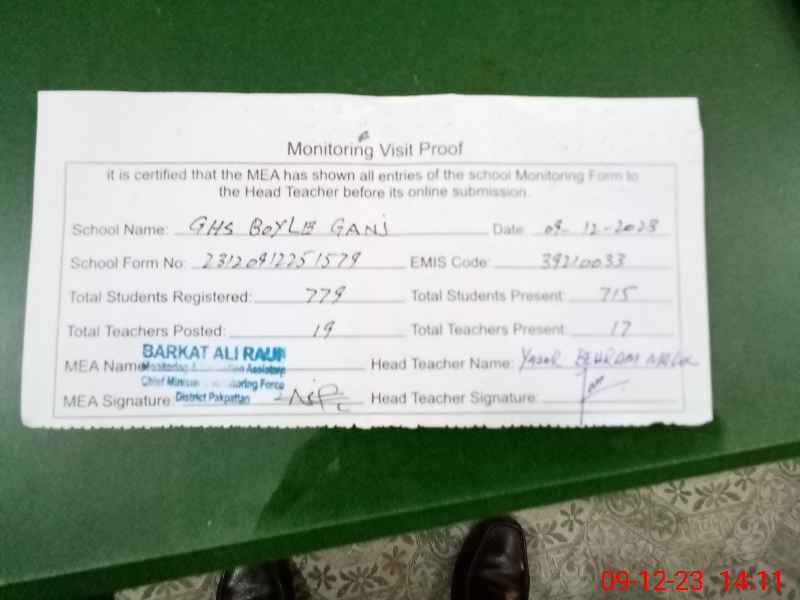 Monitoring Visit Proof
it is certified that the MEA has shown all entries of the school Monitoring Form to
the Head Teacher before its online submission.
School Name: GHS BOYLE GANJ Date: 09-12-2023
School Form No: 23120912251579 EMIS Code: 39210033
Total Students Registered: 779 Total Students Present: 715
Total Teachers Posted: 19 Total Teachers Present 17
BARKAT ALI RAUF
MEA Name Monitoring Assistant Head Teacher Name: Yasar BEHRAM
Chief Minister Monitoring Force
MEA Signature: District Pakpattan Head Teacher Signature:
09-12-23 14:11